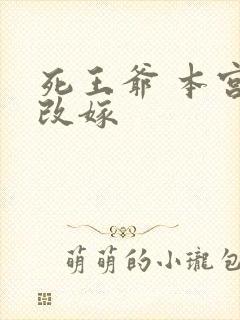 死王爷 本宫
改嫁
萌萌的小瓏包